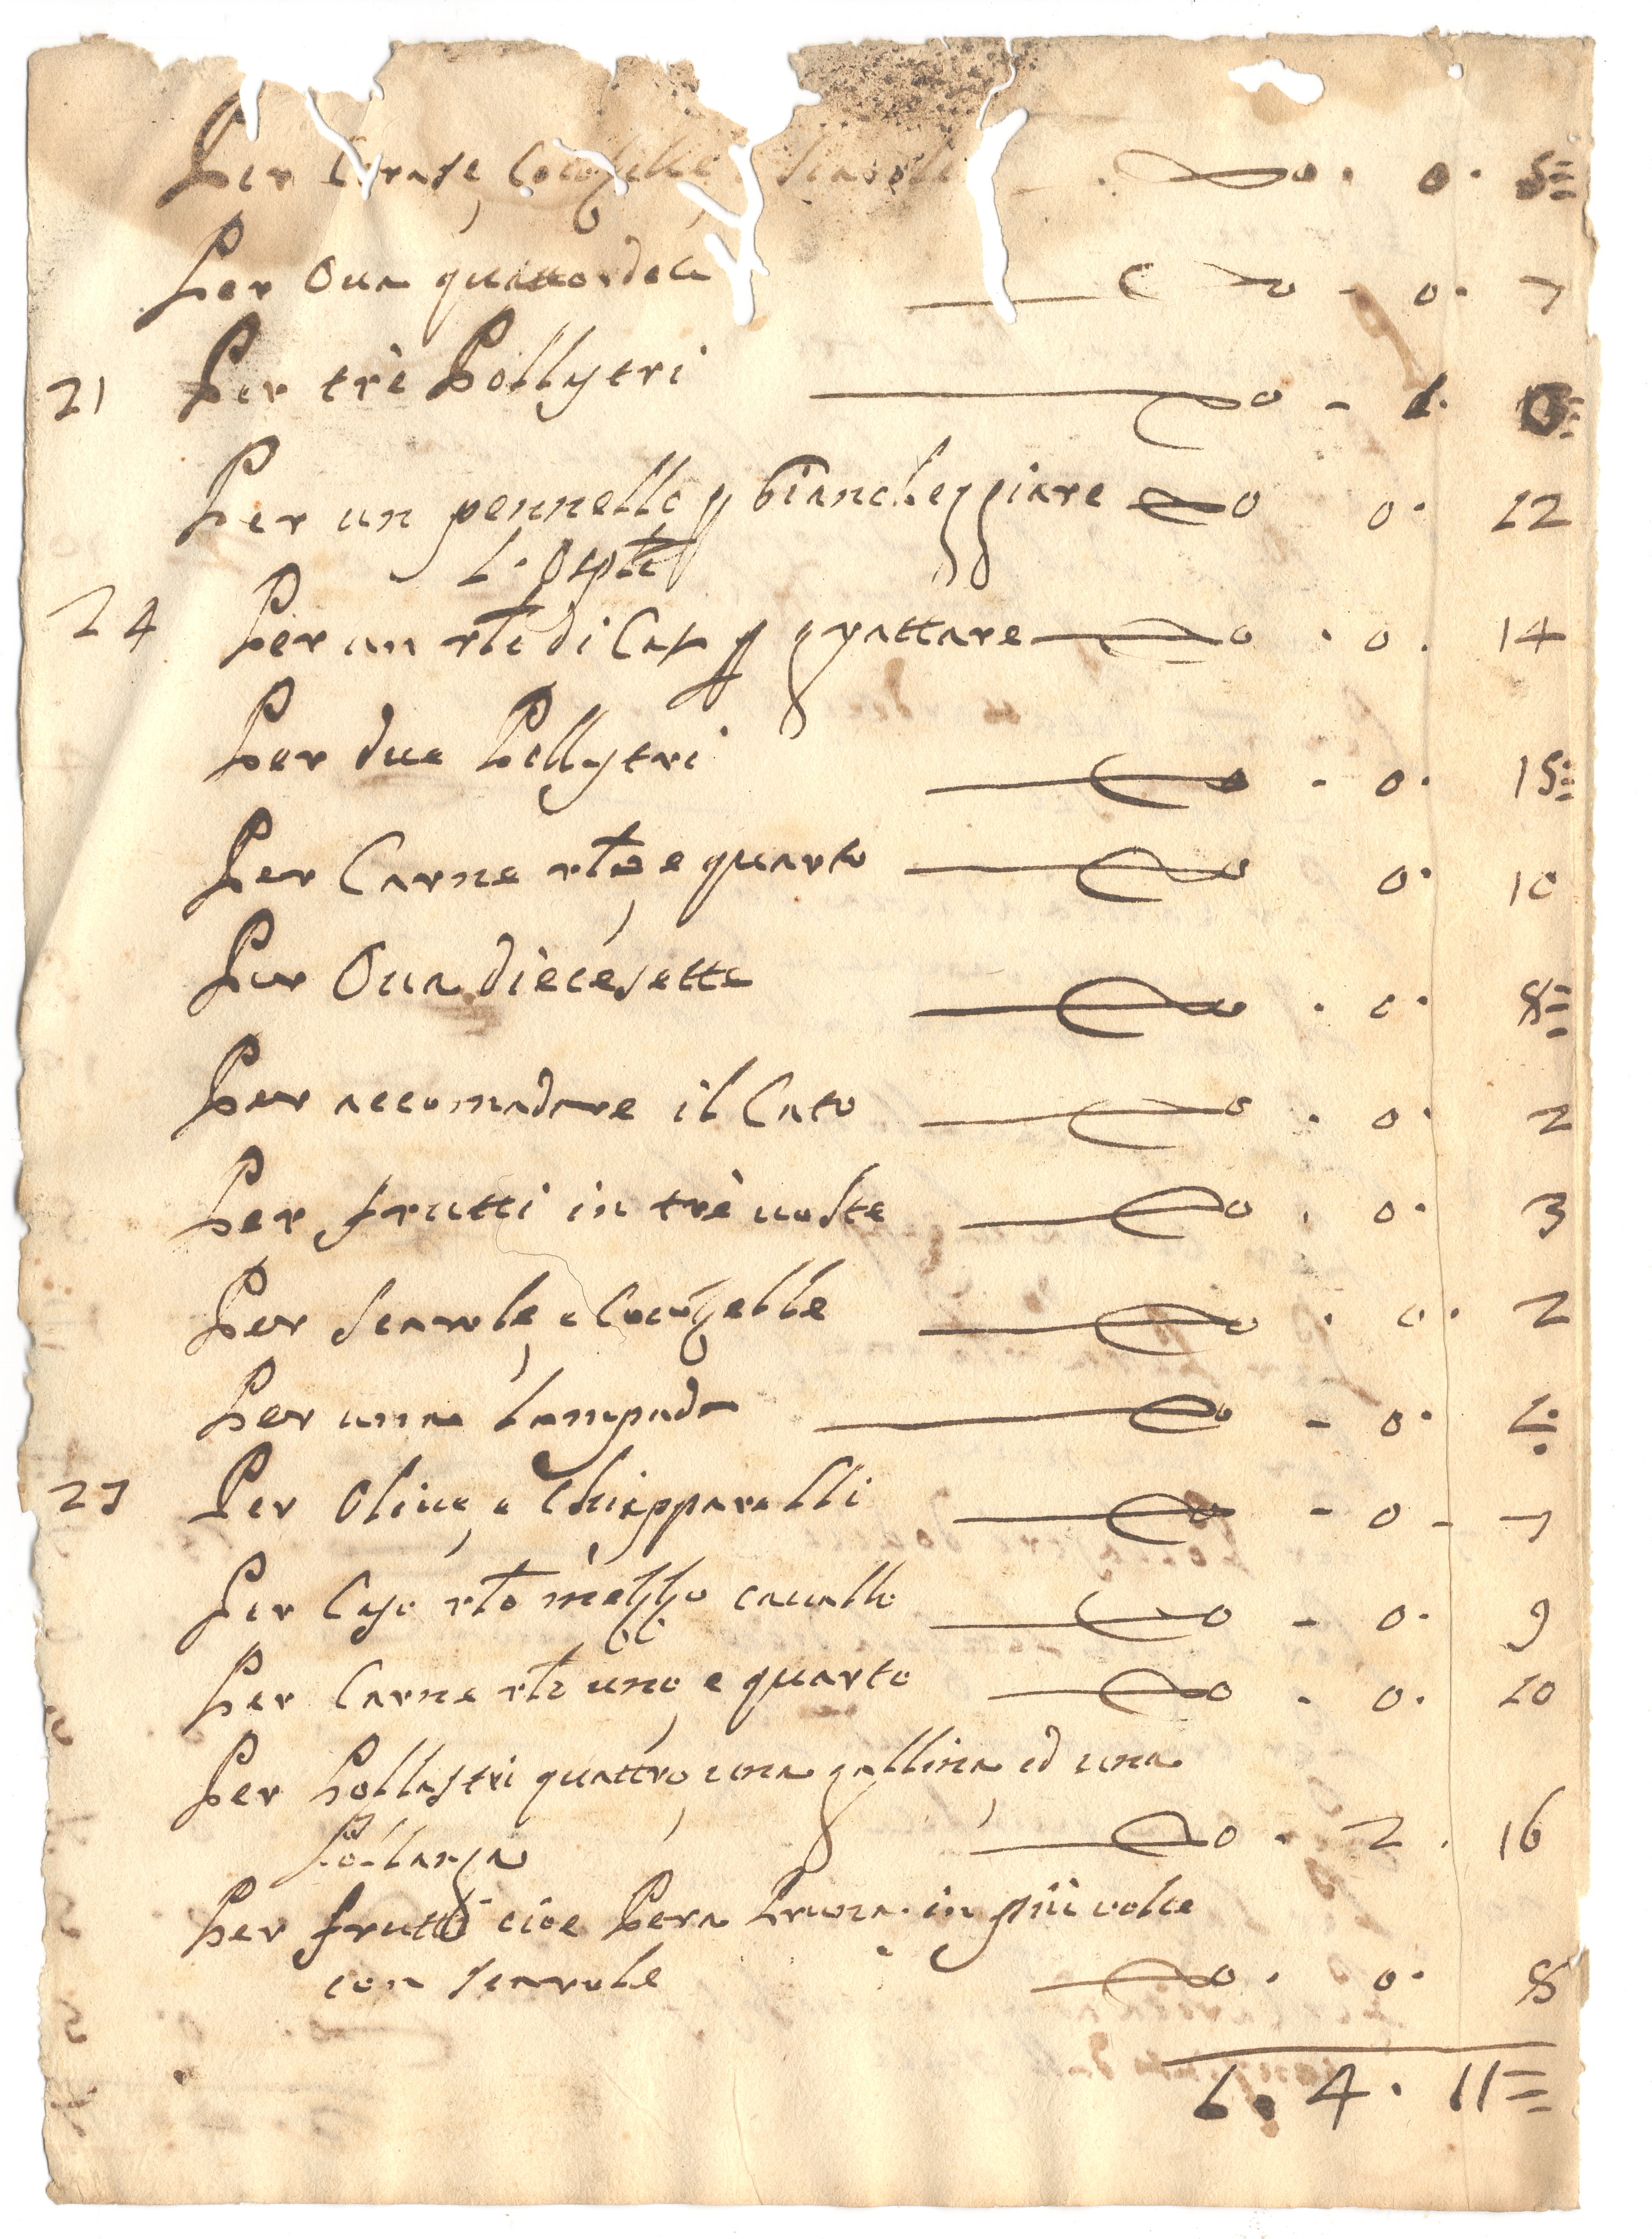 Per Cerase, Cocozelle, e scarole - . 0. 5=
Per Oua quattordeci - 0. 7
21 Per trè Pollastri - 1. 0
Per un pennello p biancheggiare 0. 12
l'Ospte
24 Per un rlo di Caso p grattare . 0. 14
Per due Pollastri - 0. 15
Per Carne rlo, e quarto 0. 10
Per Oua diecesette . 0. 8=
Per accomadare il Cato . 0. 2
Per frutti in trè uolte . 0. 3
Per scarole, e Cocozelle . 0. 2
Per una Lampada - 0.
27 Per Oliue, e Chiapparelli - 0 - 7
Per Caso rlo mezzo cauallo - 0. 9
Per Carne rlo uno, e quarto . 0. 10
Per Pollastri quattro, una gallina, ed una
Pollanza . 2. 16
Per frutti cioe Pera Pruna. in più uolte
con scarole . 0. 8
6. 4. 11=